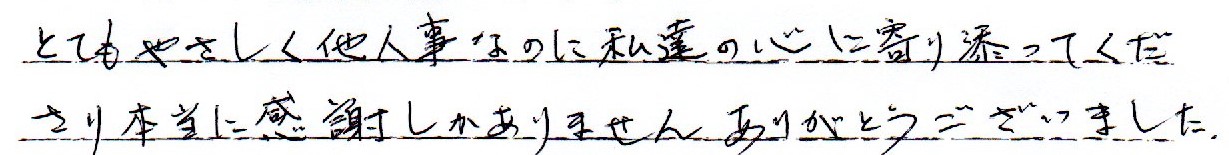 とてもやさしく他人事なのに私達の心に寄り添ってくだ
さり本当に感謝しかありません ありがとうございました.